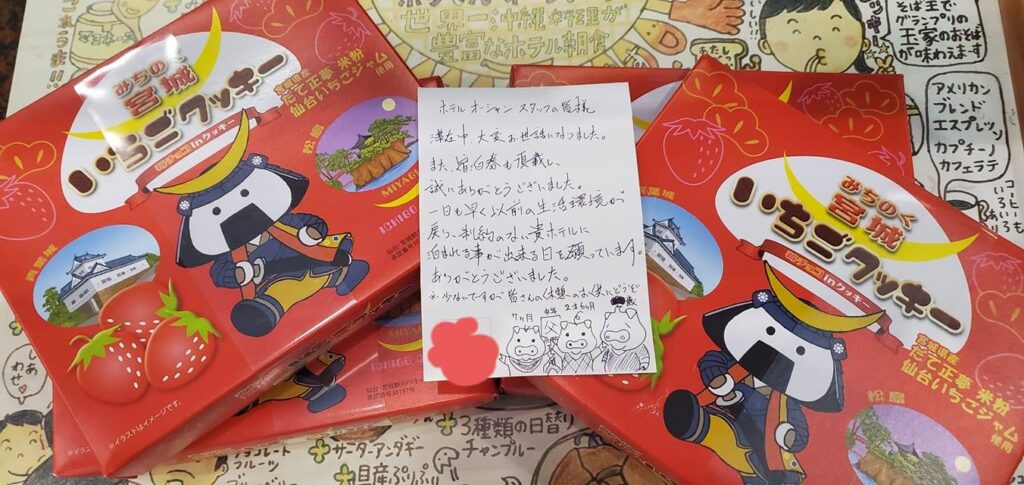 世界一沖縄料理が
豊富なホテル朝食
そば王で
グランプリの
王家のおそば
が味わえます
アメリカン
ブレンド
エスプレッソ
カプチーノ
カフェラテ
みちのく
宮城
いちごクッキー
苺チョコinクッキー
宮城県産
だて正夢 米粉
仙台いちごジャム
使用
松島
青葉城
※イラストはイメージです。
ホテルオーシャン スタッフの皆様
滞在中、大変お世話になりました。
また、宿泊券も頂戴し、
誠にありがとうございました。
一日も早く以前の生活環境が
戻り、制約のない貴ホテルに
泊まれる事が出来る日を願っています。
ありがとうございました。
※少ないですが皆さんの休憩のお供にどうぞ
7ヶ月
父
みちのく
宮城
いちごクッキー
苺チョコinクッキー
宮城県産
だて正夢 米粉
仙台いちごジャム
使用
松島
3種類の日替り
チャンプルー
サーターアンダギー
フルーツ